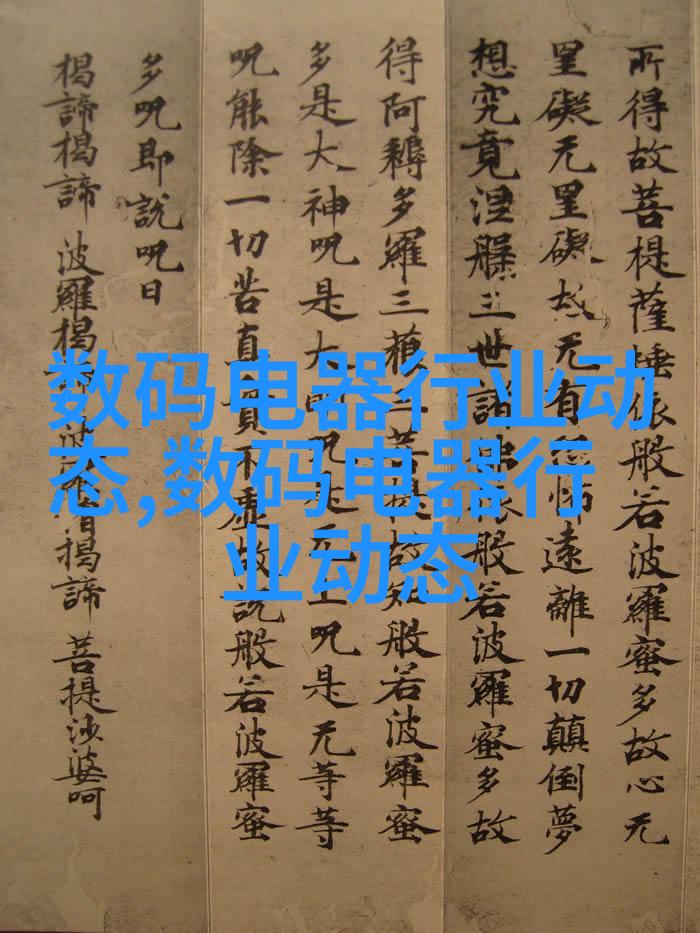 所得故菩提薩埵依般若波羅蜜多故心无
罣礙无罣礙故无有恐怖遠離一切顛倒夢
想究竟涅槃三世諸佛依般若波羅蜜多故
得阿耨多羅三藐三菩提故知般若波羅蜜
多是大神呪是大明呪是无上呪是无等等
呪能除一切苦真實不虛故說般若波羅蜜
多呪即說呪曰
揭諦揭諦 波羅揭諦 波羅僧揭諦 菩提沙婆呵
数码电器行业动
态,数码电器行
业动态